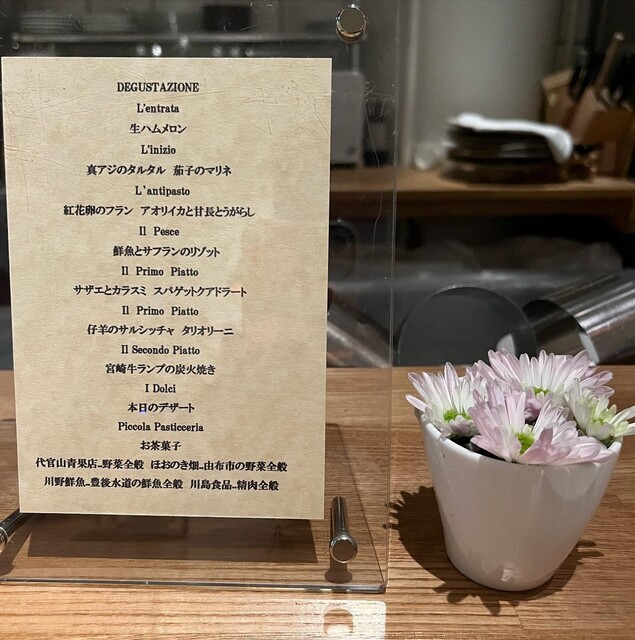 DEGUSTAZIONE
L'entrata
生ハムメロン
L'inizio
真アジのタルタル 茄子のマリネ
L'antipasto
紅花卵のフラン アオリイカと甘長とうがらし
Il Pesce
鮮魚とサフランのリゾット
Il Primo Piatto
サザエとカラスミ スパゲットクアドラート
Il Primo Piatto
仔羊のサルシッチャ タリオリーニ
Il Secondo Piatto
宮崎牛ランプの炭火焼き
I Dolci
本日のデザート
Piccola Pasticceria
お茶菓子
代官山青果店...野菜全般 ほおのき畑...由布市の野菜全般
川野鮮魚...豊後水道の鮮魚全般 川島食品...精肉全般